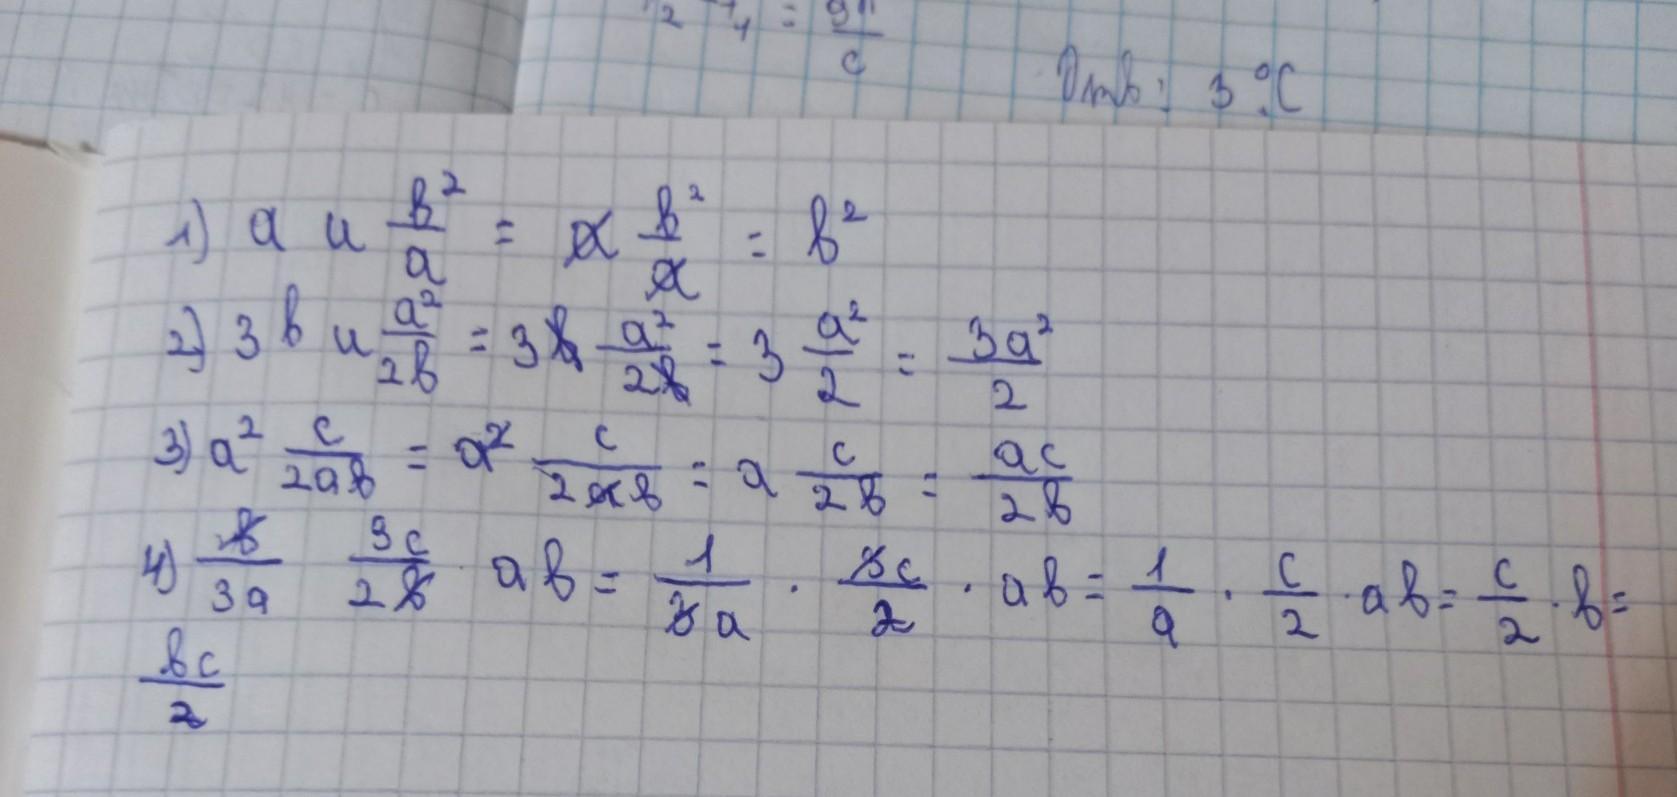 = 9π/c
Отв: 3 °C
1) a и b²/a = a b²/a = b²
2) 3b и a²/2b = 3b a²/2b = 3 a²/2 = 3a²/2
3) a² c/2ab = a² c/2ab = a c/2b = ac/2b
4) b/3a 3c/2b · ab = 1/3a · 3c/2 · ab = 1/a · c/2 · ab = c/2 · b =
bc/2